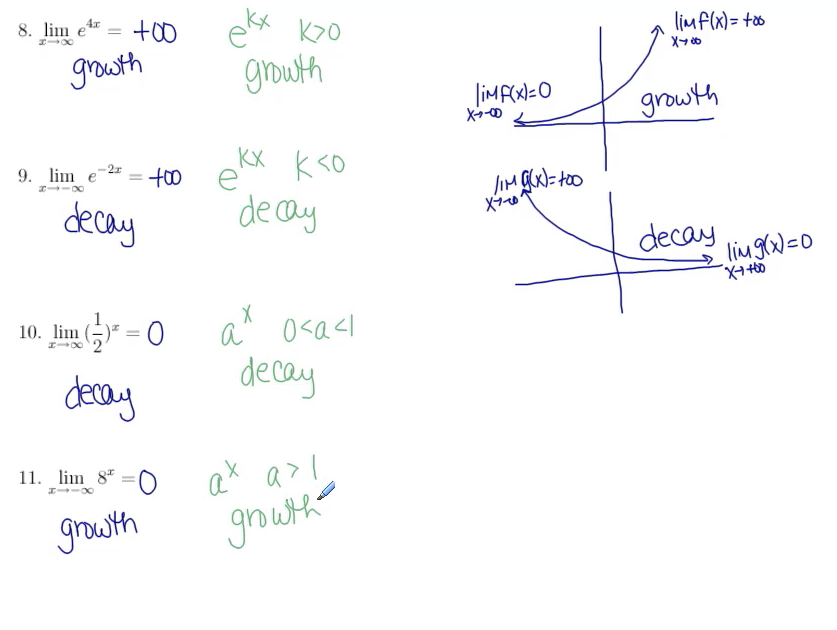 8. lim x→∞ e^{4x} = +∞
growth
e^{kx} k>0
growth
9. lim x→−∞ e^{−2x} = +∞
decay
e^{kx} k<0
decay
10. lim x→∞ (1/2)^x = 0
decay
a^x 0<a<1
decay
11. lim x→−∞ 8^x = 0
growth
a^x a>1
growth
lim f(x)=+∞
x→∞
lim f(x)=0
x→-∞
growth
lim g(x)=+∞
x→-∞
decay
lim g(x)=0
x→+∞